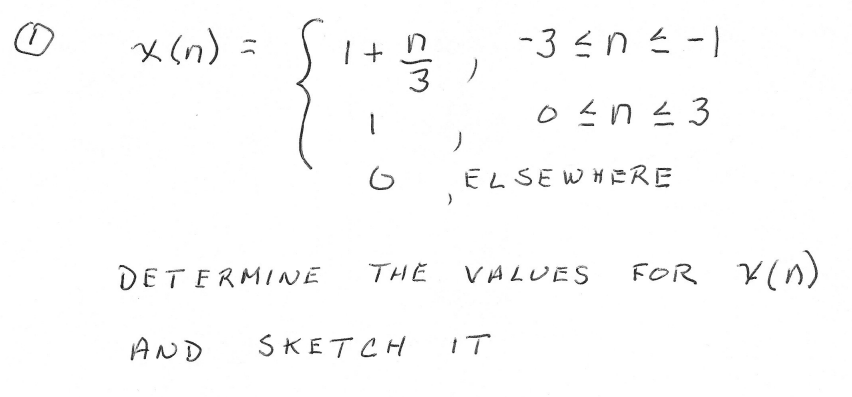 ① x(n) = { 1 + n/3 , -3 ≤ n ≤ -1
1 , 0 ≤ n ≤ 3
0 , ELSEWHERE
DETERMINE THE VALUES FOR x(n)
AND SKETCH IT